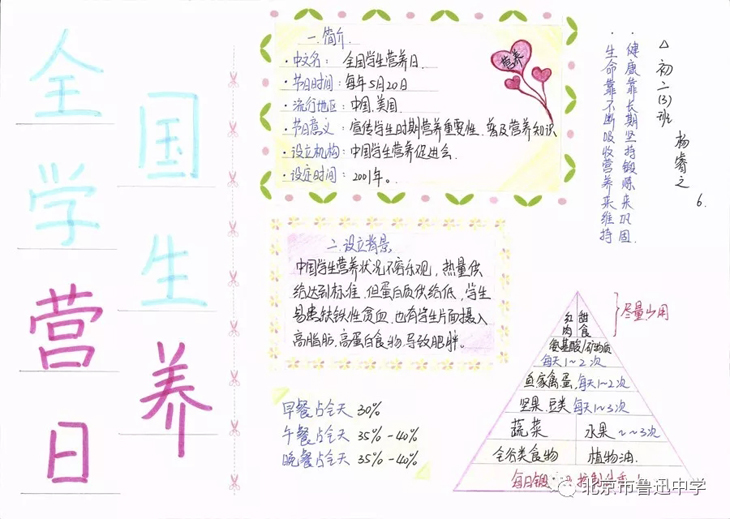 全国学生营养日
一.简介
·中文名：全国学生营养日.
·节日时间：每年5月20日
·流行地区：中国.美国.
·节日意义：宣传学生时期营养重要性.普及营养知识
·设立机构：中国学生营养促进会.
·设定时间：2001年。
营养
△初二(3)班 杨睿之 6.
·健康靠长期坚持锻炼来巩固.
·生命靠不断吸收营养来维持
二.设立背景
中国学生营养状况不容乐观，热量供
给达到标准，但蛋白质供给低，学生
易患缺铁性贫血.也有学生片面摄入
高脂肪.高蛋白食物.导致肥胖。
早餐占全天 30%
午餐占全天 35%-40%
晚餐占全天 35%-40%
红肉 甜食
尽量少用
氨基酸/矿物质
每天1~2次
鱼家禽蛋，每天1~2次
坚果.豆类 每天1~3次
蔬菜 水果 2~3次
全谷类食物 植物油.
每日锻
北京市鲁迅中学